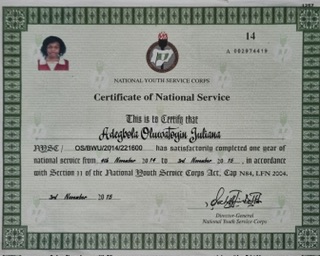 14
A 002874419
NATIONAL YOUTH SERVICE CORPS
Certificate of National Service
This is to Certify that
Adegbola Oluwatoyin Juliana
NYSC/ OS/BWU/2014/221600 has satisfactorily completed one year of
national service from 4th November 2014 to 3rd November 2015, in accordance
with Section 11 of the National Youth Service Corps Act, Cap N84, LFN 2004.
3rd November 2015
Director-General
National Youth Service Corps